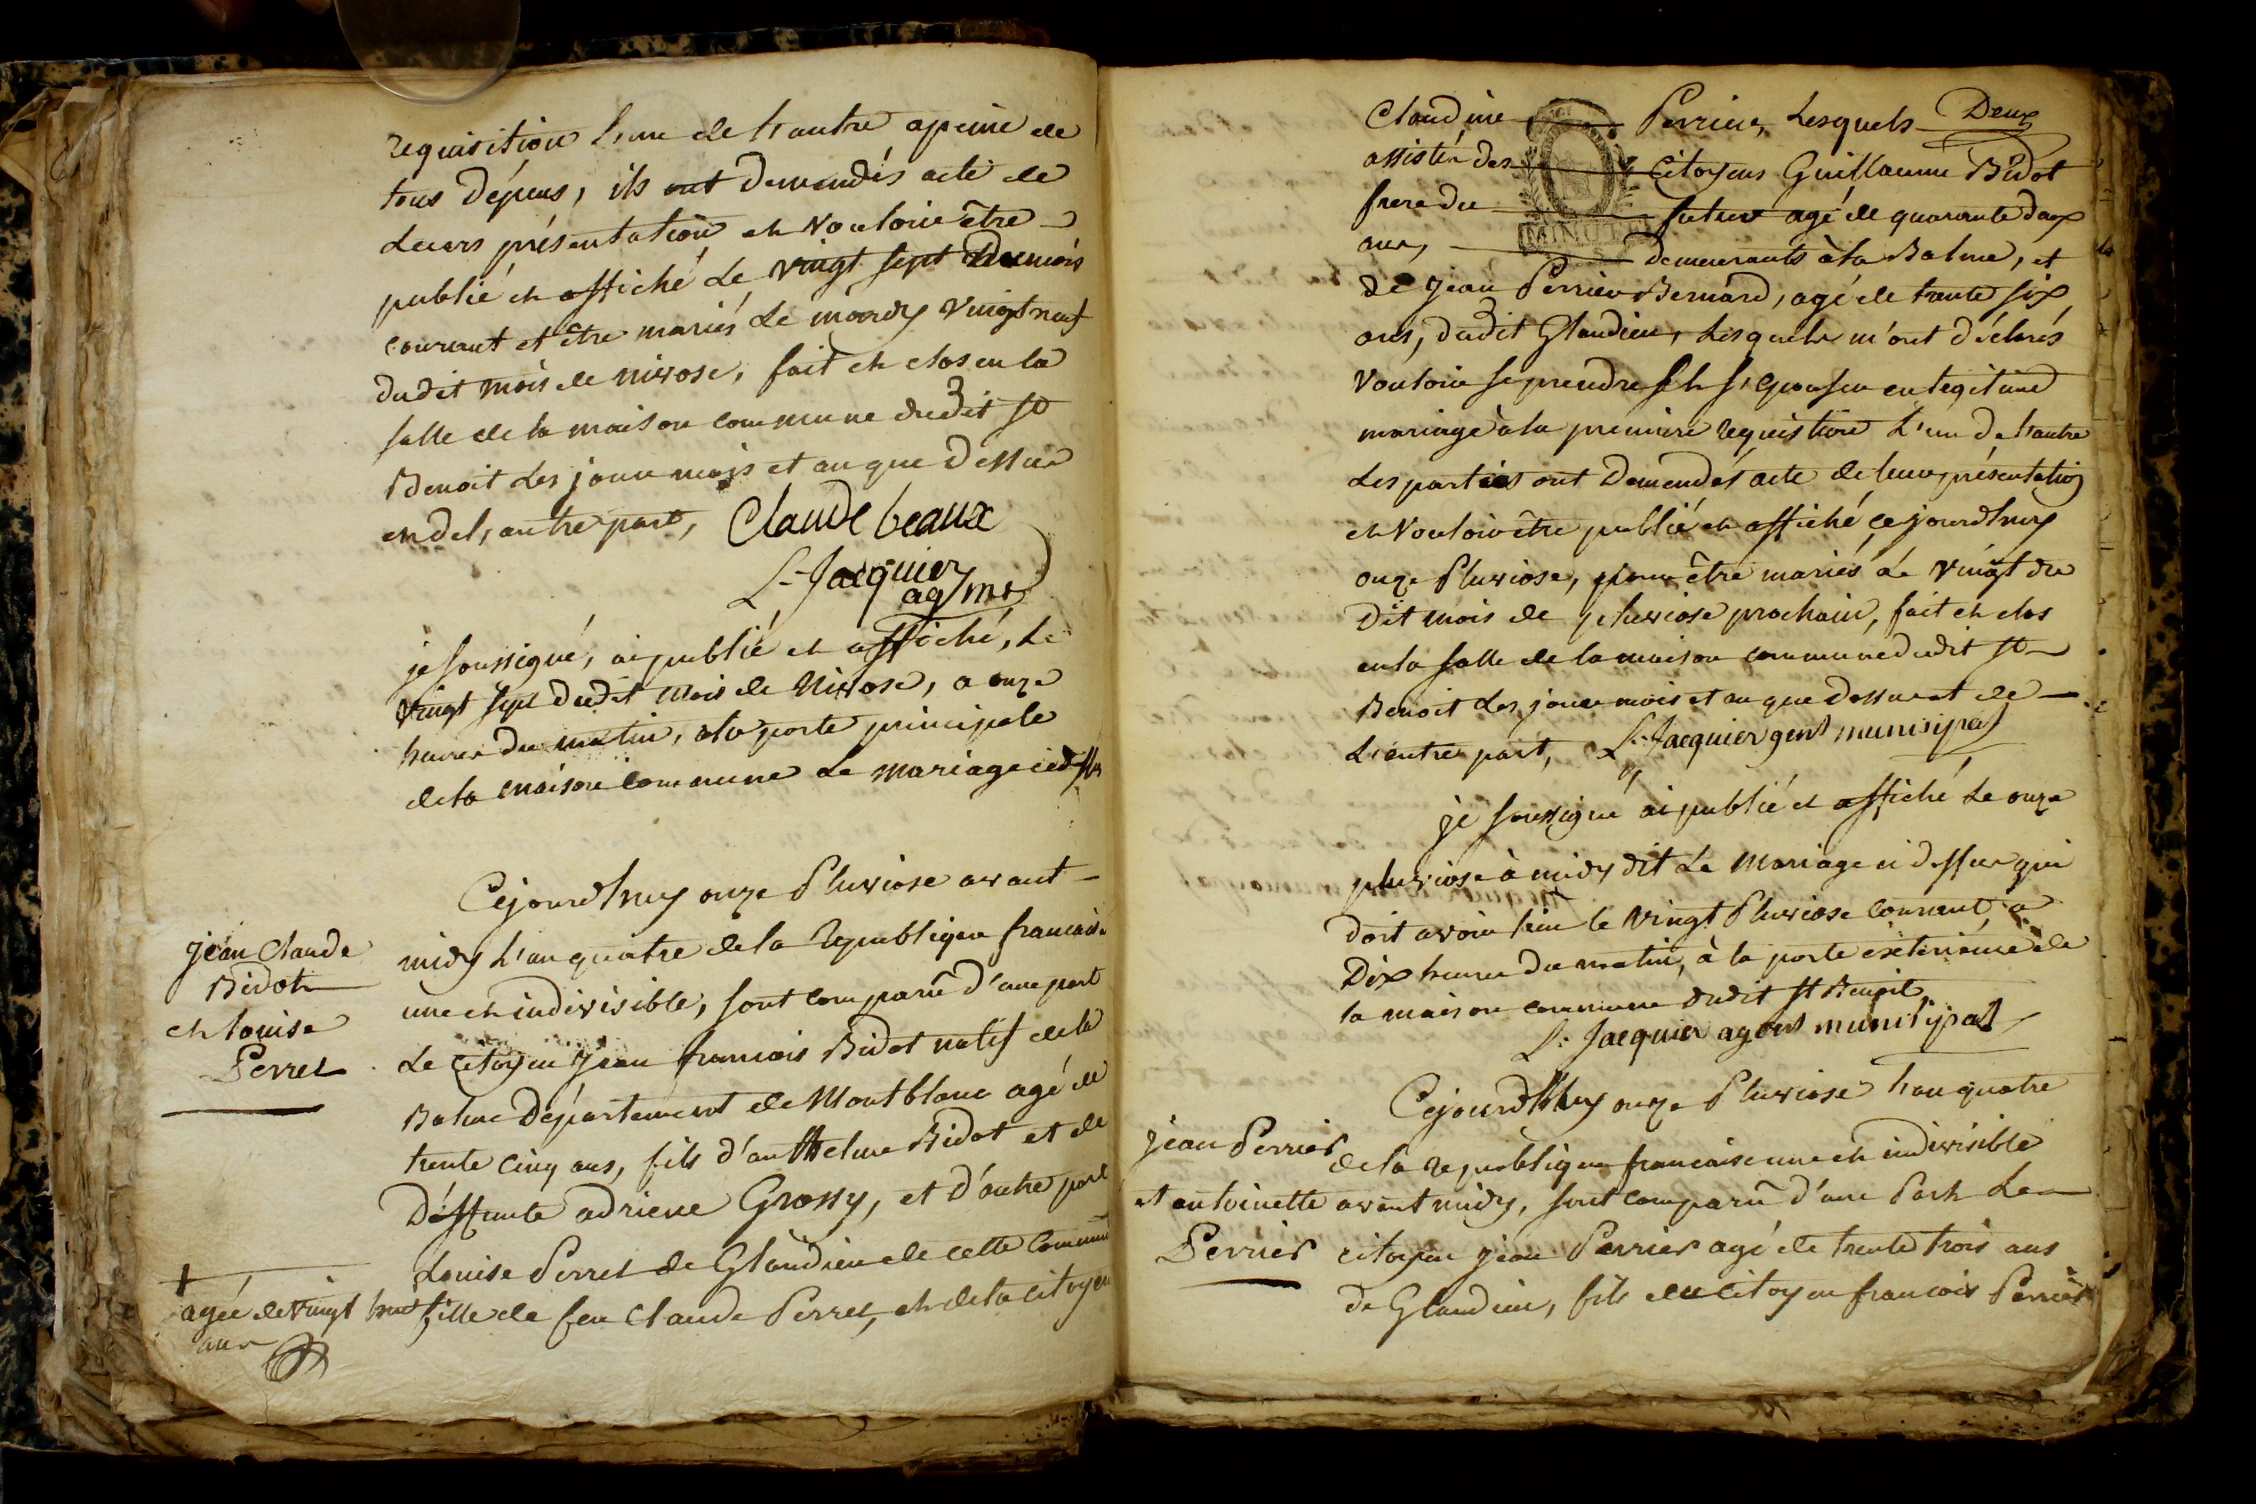 requisition l'une de l'autre apeine de
tous dépens, ils ont demandés acte de
leurs présentation et vouloir être
publié et affiché le vingt sept du mois
courrant et être mariés le mardy vingt neuf
dudit mois de nivose, fait et clos en la
salle de la maison commune dudit St
Benoit les jour mois et an que dessus
en del, autre part, Claude beaux
L. Jacquier
ag mt
je soussigné, ai publié et affiché, le
vingt sept dudit mois de Nivose, a onze
heures du matin, a la porte principale
de la maison commune le mariage
Cejourd'huy onze Pluviose avant
midy l'an quatre de la Republique francaise
une et indivisible, sont comparû d'une part
le Citoyen Jean francois Bidot natif de la
Balme Département de Montblanc agé de
trente cinq ans, fils d'anthelme Bidot et de
Déffunte adriene Grossy, et d'autre part
Louise Perret de Glandieu de cette Commune
fille de feu Claude Perret, et de la citoyen
jean Claude
Bidot
et louise
Perret
agée de vingt huit
ans
Claudine Perrier, Lesquels Deux
assistés des citoyens Guillaume Bidot
frere du futeur agé de quarante deux
ans, demeurants à la Balme, et
MINUTE
de Jean Perrier Bernard, agé de trente six
ans, dudit Glandieu, Lesquels m'ont déclarés
vouloir se prendre et s'epouser en legitime
mariage à la premiere requistion l'un de l'autre
Les parties ont demendés acte de leur présentation
et vouloir être publié et affiché, cejourd'huy
onze Pluviose, pour être mariés le vingt du
dit mois de pluviose prochain, fait et clos
en la salle de la maison commune dudit St
Benoit les jour mois et an que dessus et de
L'autre part, L. Jacquier gent munisipal
je soussigné ai publié et affiché le onze
pluviose à midy dit le mariage ci dessus qui
doit avoir lieu le vingt Pluviose courrant, a
Dix heures du matin, à la porte éxterieure de
la maison commune dudit St Benoit
L. Jacquier agent munisipal
Cejourd'huy onze Pluviose l'an quatre
de la Republique francaise une et indivisible
avant midy, sont comparû d'une Part Le
citoyen jean Perrier agé de trente trois ans
de Glandieu, fils du citoyen francois Perrier
jean Perrier
et antoinette
Perrier